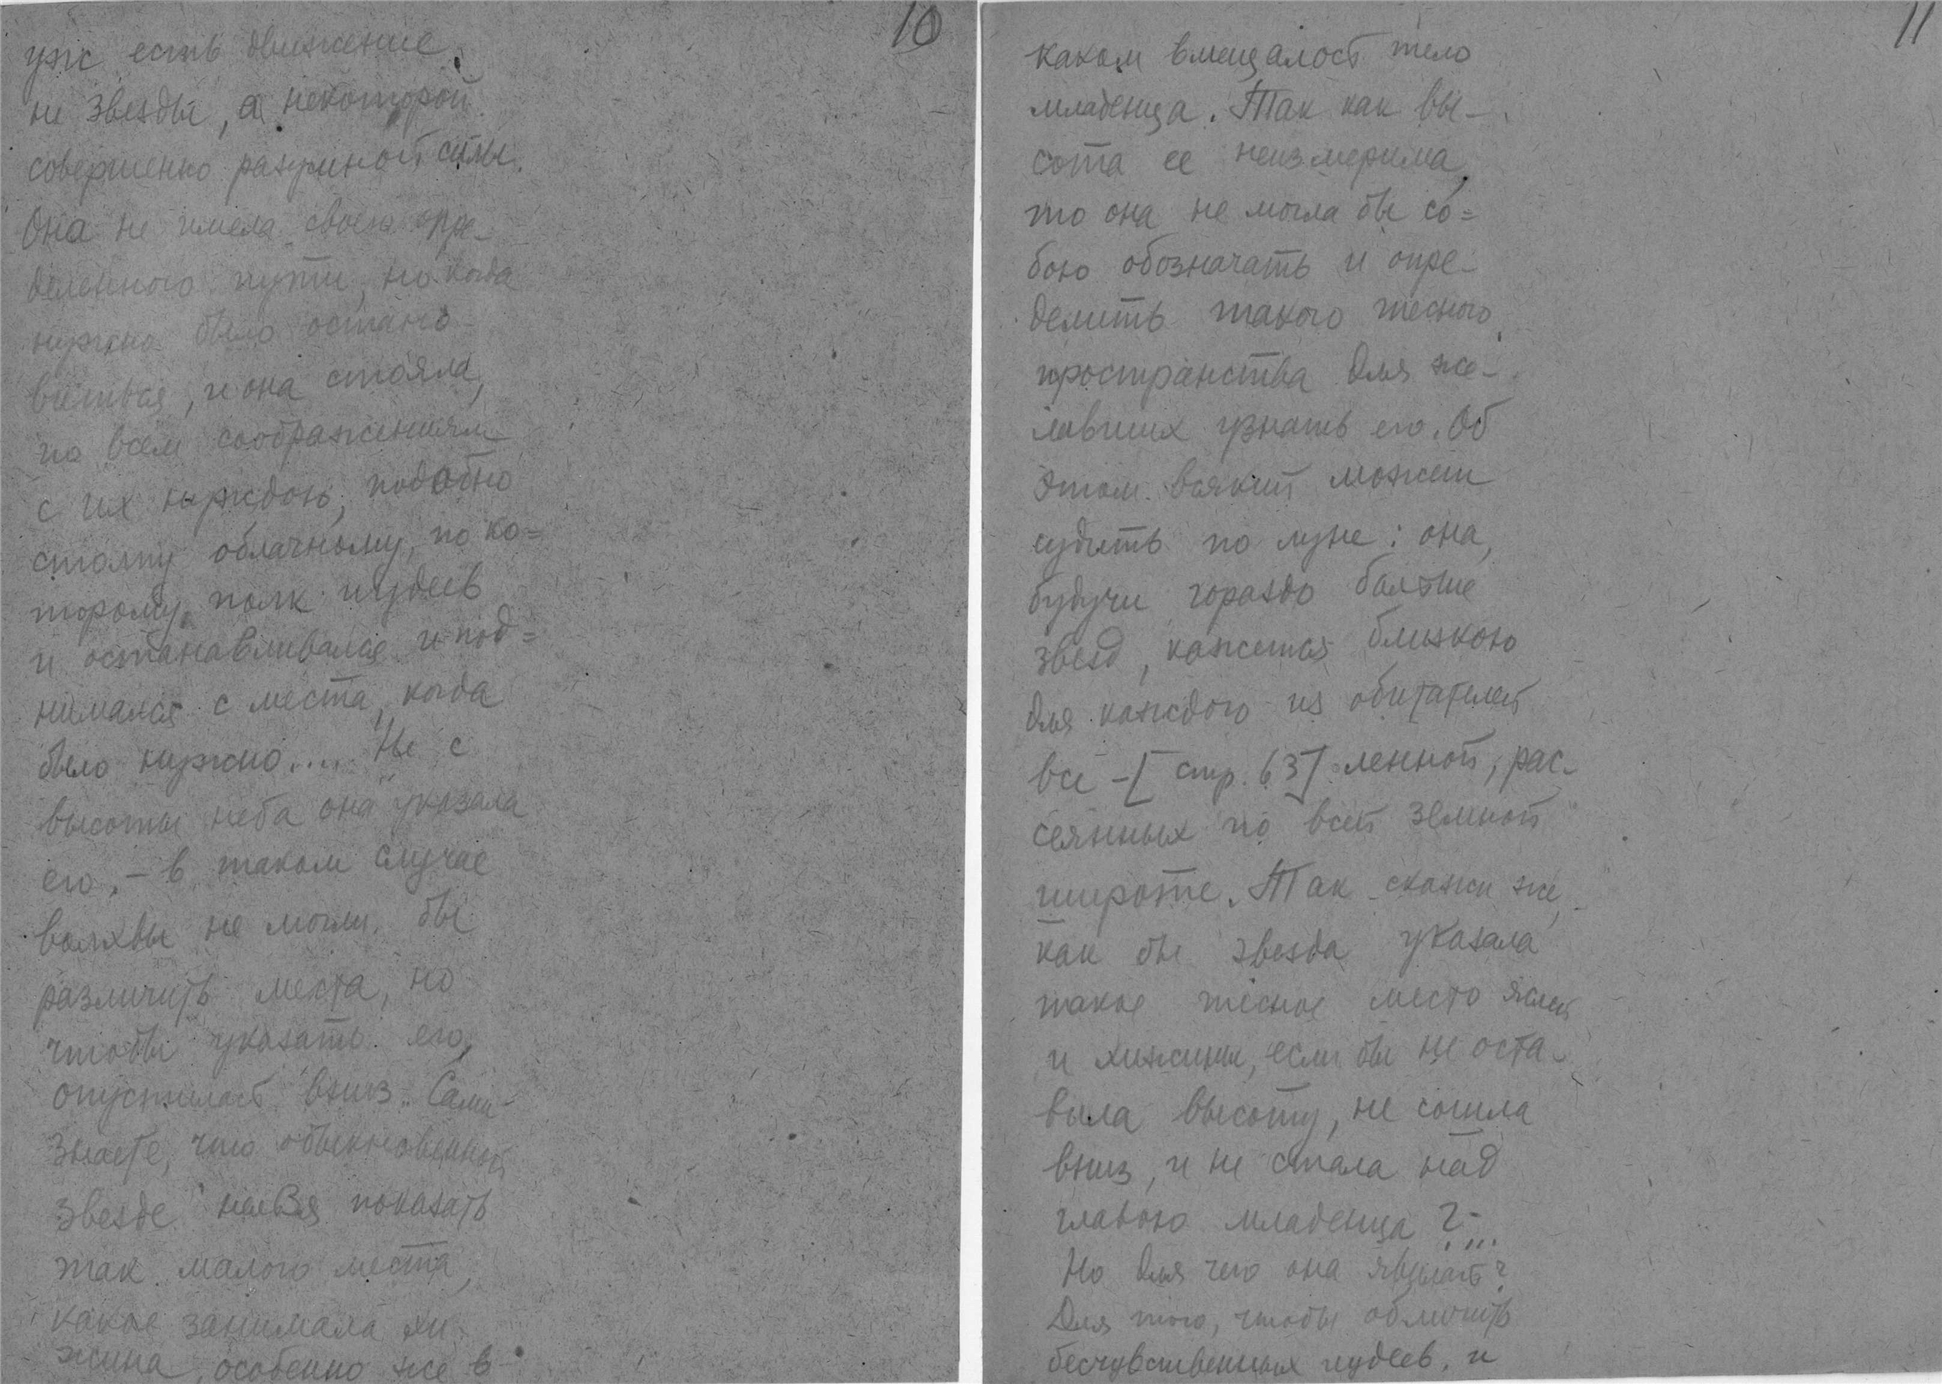 10
уж есть движение
не звезды, а некоторой
совершенно разумной силы.
Она не имела своего опре-
деленного пути, но когда
нужно было остано-
виться, и она стояла,
по всем соображениям
с их нуждою, подобно
столпу облачному, по ко=
торому полк иудеев
и останавливался и под=
нимался с места, когда
было нужно.... Не с
высоты неба она указала
его, - в таком случае
волхвы не могли бы
различить места, но
чтобы указать его,
опустилась вниз. Сами
знаете, что обыкновенной
звезде нельзя показать
так малого места,
какое занимала хи
жина, особенно же в
11
каком вмещалось тело
младенца. Так как вы-
сота ее неизмерима,
то она не могла бы со=
бою обозначать и опре-
делить такого тесного
пространства для же-
лавших узнать его. Об
этом всякий может
судить по луне: она,
будучи гораздо больше
звезд, кажется близкою
для каждого из обитателей
все-[стр. 63] ленной, рас-
сеянных по всей земной
широте. Так скажи же,
как бы звезда указала
такое тесное место яслей
и хижины, если бы не оста-
вила высоту, не сошла
вниз, и не стала над
главою младенца?-...
Но для чего она явилась?
Для того, чтобы обличить
бесчувственных иудеев, и